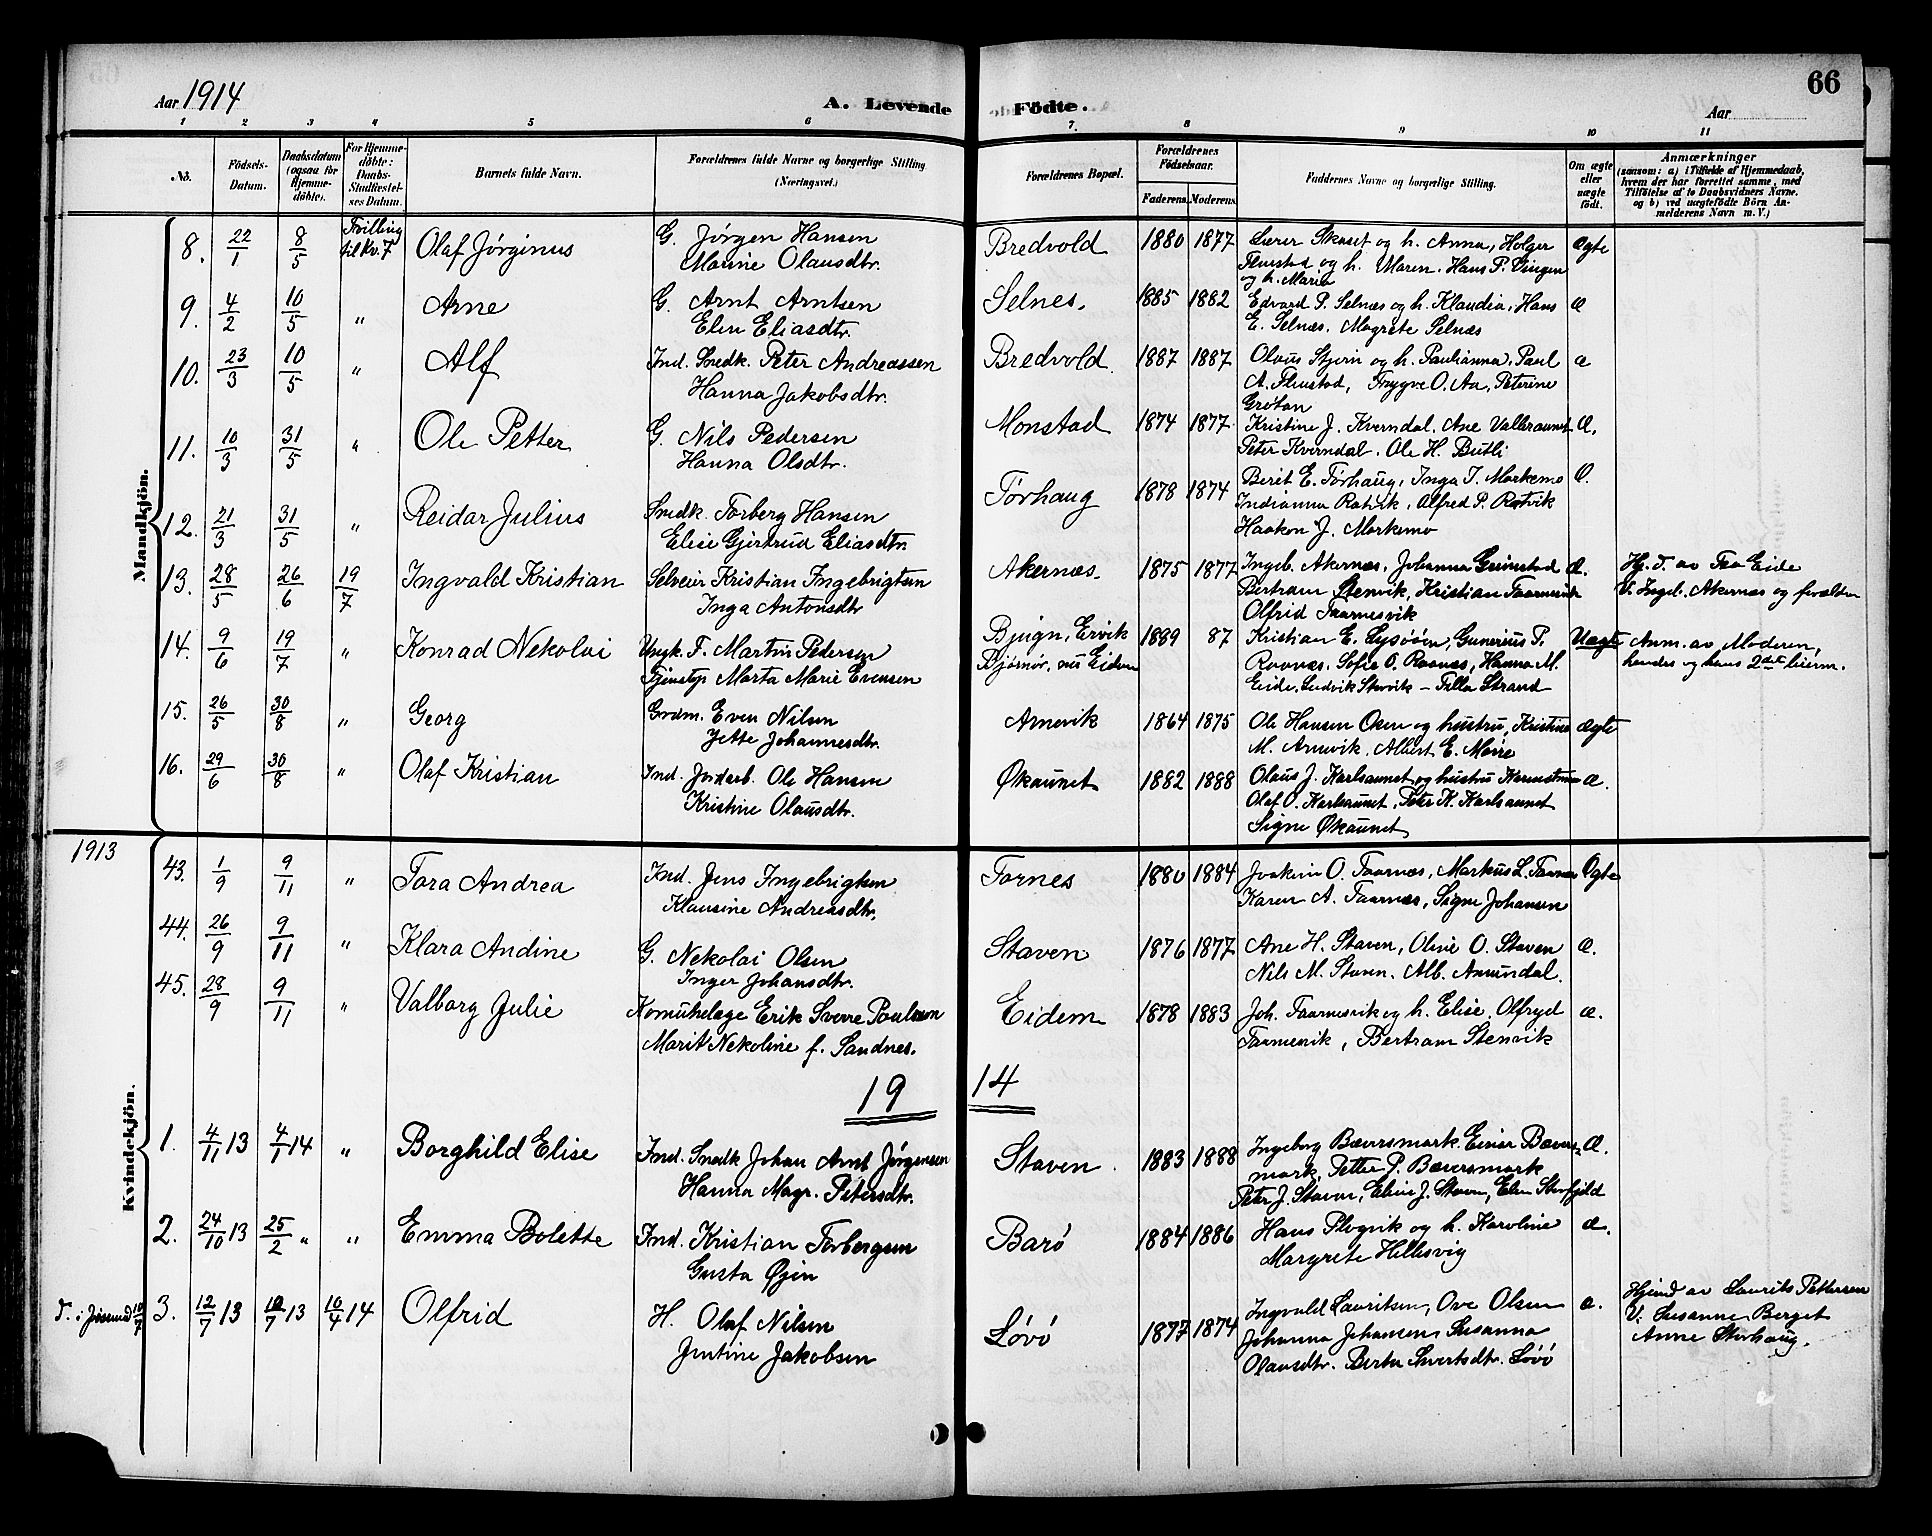 66
Aar 1914
A. Levende Födte.
Aar
1 2 3 4 5 6 7. 8 9 10 11
No.
Födsels-Datum.
Daabsdatum (ogsaa for Hjemme-döbte).
For Hjemme-döbte: Daabs-Stadfæstel-ses Datum.
Barnets fulde Navn.
Forældrenes fulde Navne og borgerlige Stilling (Næringsvei.)
Forældrenes Bopæl.
Forældrenes Födselsaar.
Faderens. Moderens.
Faddernes Navne og borgerlige Stilling.
Om ægte eller uægte födt.
Anmærkninger
(saasom: a) i Tilfælde af Hjemmedaab,
hvem der har forrettet samme, med
Tilföielse af to Daabsvidners Navne.
og b) ved uægtefödte Börn An-
melderens Navn m. V.)
Mandkjön.
8. 22/1 8/5 Tvilling til Kv. 7 Olaf Jørginus G. Jørgen Hansen Bredvold 1880 1877 Lærer Skaset og h. Anna, Holger ægte
Marine Olausdtr. Flenstad og h. Maren. Hans P. Vingen
og h. Marie
9. 4/2 10/5 " Arne G. Arnt Arntsen Selnes. 1885 1882 Edvard P. Selnæs og h. Klaudia, Hans æ
Elen Eliasdtr. E. Selnæs. Magrete Selnæs
10. 23/3 10/5 " Alf Ind. Snedk. Peter Andreassen Bredvold. 1887 1887 Olaus Stjern og h. Paulianna, Paul æ
Hanna Jakobsdtr. A. Flenstad, Trygve O. Aa, Peterine
Grøtan
11. 10/3 31/5 " Ole Petter G. Nils Pedersen Monstad 1874 1877 Kristine J. Kverndal. Ane Vallersunet Æ.
Hanna Olsdtr. Peter Kverndal. Ole H. Butli
12. 21/3 31/5 " Reidar Julius Snedk. Torberg Hansen Tørhaug 1878 1874 Berit E. Tørhaug, Inga J. Markemo
Elise Gjertrud Eliasdtr. Indianna Ratvik, Alfred P. Ratvik
Haakon J. Markemo
13. 28/5 26/6 19/7 Ingvald Kristian Selveier Kristian Ingebrigtsen Akernæs. 1875 1877 Ingeb. Akernæs, Johanna Grimstad Æ. Hj. d. av Fea Eide
Inga Antonsdtr Bertram Stenvik, Kristian Taarnesvik V. Ingeb. Akernæs og forældre
Olfrid Taarnesvik
14. 9/6 19/7 " Konrad Nekolai Ungk. F. Martin Pedersen Bjugn, Ervik 1889 87 Kristian E. Lysøsön, Gunerius P. Uægte Anm. av Moderen,
Tjenstep Marta Marie Evensen Bjørnør, nu Eidem Raanæs. Sofie O. Raanæs, Hanna M. hendes og hans 2det leierm.
Eide. Ludvik Stenvik – Tilla Strand
15. 26/5 30/8 " Georg Grdm. Even Nilsen Arnevik 1864 1875 Ole Hansen Osen og hustru, Kristine ægte
Jette Johannesdtr. M. Arnevik, Albert E. Morre
16. 29/6 30/8 " Olaf Kristian Ind. Jordarb. Ole Hansen Økaunet 1882 1888 Olaus J. Karlsaunet og hustru æ.
Kristine Olausdtr. Olaf O. Karlsaunet, Peter K. Karlsaunet
Signe Økaunet
1913
Kvindekjön.
43. 1/9 9/11 " Tora Andrea Ind. Jens Ingebrigtsen Tornes 1880 1884 Joakim O. Taarnæs, Markus L. Taarnæs Ægte
Klausine Andreasdtr. Karen A. Taarnæs, Signe Johansen
44. 26/9 9/11 " Klara Andine G. Nekolai Olsen Staven 1876 1877 Ane H. Staven, Oline O. Staven æ.
Inger Johansdtr. Nils M. Staven. Alb. Amundal.
45. 28/9 9/11 " Valborg Julie Komunelæge Erik Sverre Poulsson Eidem 1878 1883 Joh. Taarnesvik og h. Elise. Olfryd æ.
Marit Nekoline f. Sandnes. Taarnesvik, Bertram Stenvik
19 14
1. 4/11 13 4/1 14 " Borghild Elise Ind. Snedk Johan Arnt Jørgensen Staven. 1883 1888 Ingeborg Bæversmark. Einar Bævers- Æ.
Hanna Magr. Petersdtr. mark, Petter P. Bæversmark
Peter J. Staven, Eline J. Staven, Elen Storfjeld
2. 24/10 13 25/2 " " Emma Bolette Ind. Kristian Torbergsen Barø 1884 1886 Hans Plogvik og h. Karoline æ.
Gusta Øjen Margrete Hellesvig
D. i Jøssund 10/7 3. 12/7 13 10/7 13 10/4 14 Olfrid H. Olaf Nilsen Løvø 1877 1874 Ingvald Lauritsen, Ove Olsen æ. Hjemd av Laurits Pettersen
Jentine Jakobsen Johanna Johansen, Susanna V: Susanne Berget
Olausdtr. Berta Sivertsdtr. Løvø Anne Storhaug.